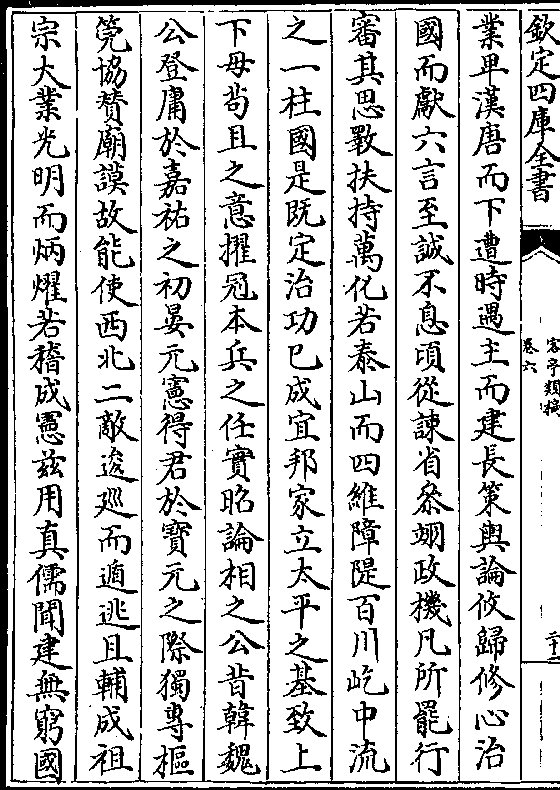 欽定四庫全書
客亭類稿
卷六
業卑漢唐而下遭時遇主而建長策輿論攸歸修心治
國而獻六言至誠不息頃從諫省叅翊政機凡所罷行
審其思斁扶持萬化若泰山而四維障隄百川屹中流
之一柱國是既定治功已成宜邦家立太平之基致上
下毋茍且之意擢冠本兵之任實昭論相之公昔韓魏
公登庸於嘉祐之初晏元憲得君於寶元之際獨專樞
筦協賛廟謨故能使西北二敵逡廵而遁逃且輔成祖
宗大業光明而炳燿若稽成憲兹用真儒聞建無窮國